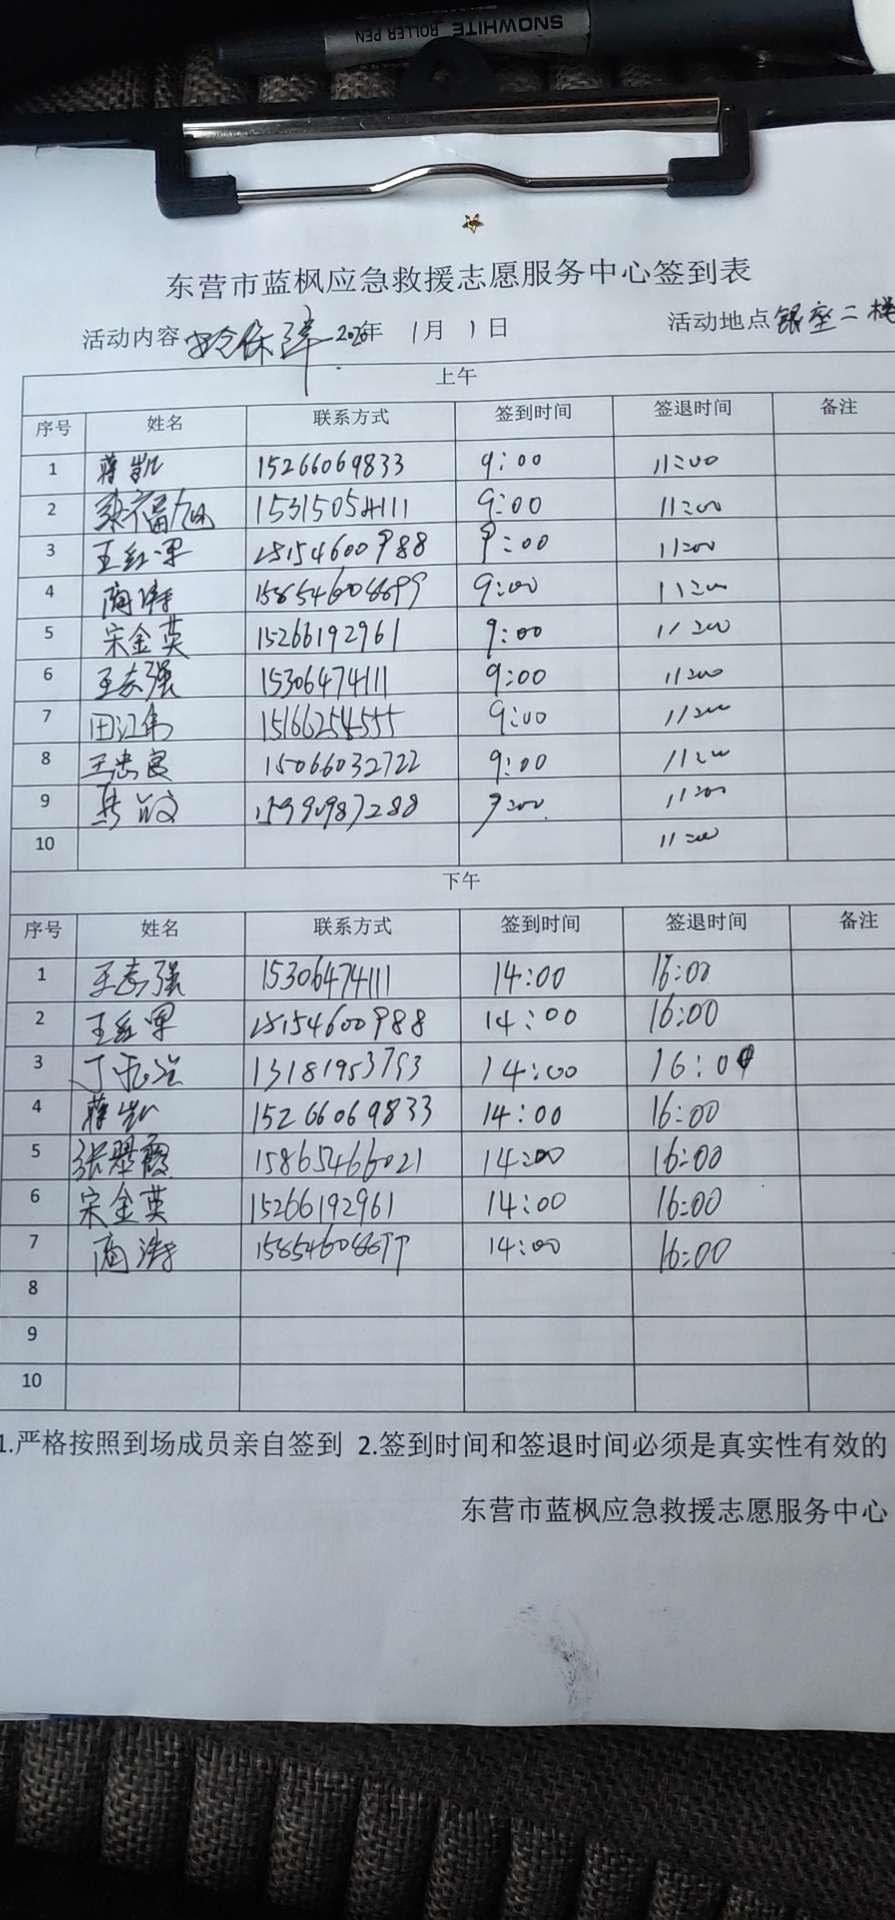 SNOWHITE ROLLER PEN
东营市蓝枫应急救援志愿服务中心签到表
活动内容 2026年 1月 1日 活动地点 银座二楼
上午
序号 姓名 联系方式 签到时间 签退时间 备注
1 蒋凯 15266069833 9:00 11:00
2 15315054111 9:00 11:00
3 王红军 18154600988 9:00 11:00
4 商涛 9:00 11:00
5 宋金英 15266192961 9:00 11:00
6 王志强 15306474111 9:00 11:00
7 田江伟 15166254555 9:00 11:00
8 王忠良 15066032722 9:00 11:00
9 15990987288 9:00 11:00
10 11:00
下午
序号 姓名 联系方式 签到时间 签退时间 备注
1 王志强 15306474111 14:00 16:00
2 王红军 18154600988 14:00 16:00
3 14:00 16:00
4 蒋凯 15266069833 14:00 16:00
5 张翠霞 15865466021 14:00 16:00
6 宋金英 15266192961 14:00 16:00
7 商涛 14:00 16:00
8
9
10
1.严格按照到场成员亲自签到 2.签到时间和签退时间必须是真实性有效的
东营市蓝枫应急救援志愿服务中心